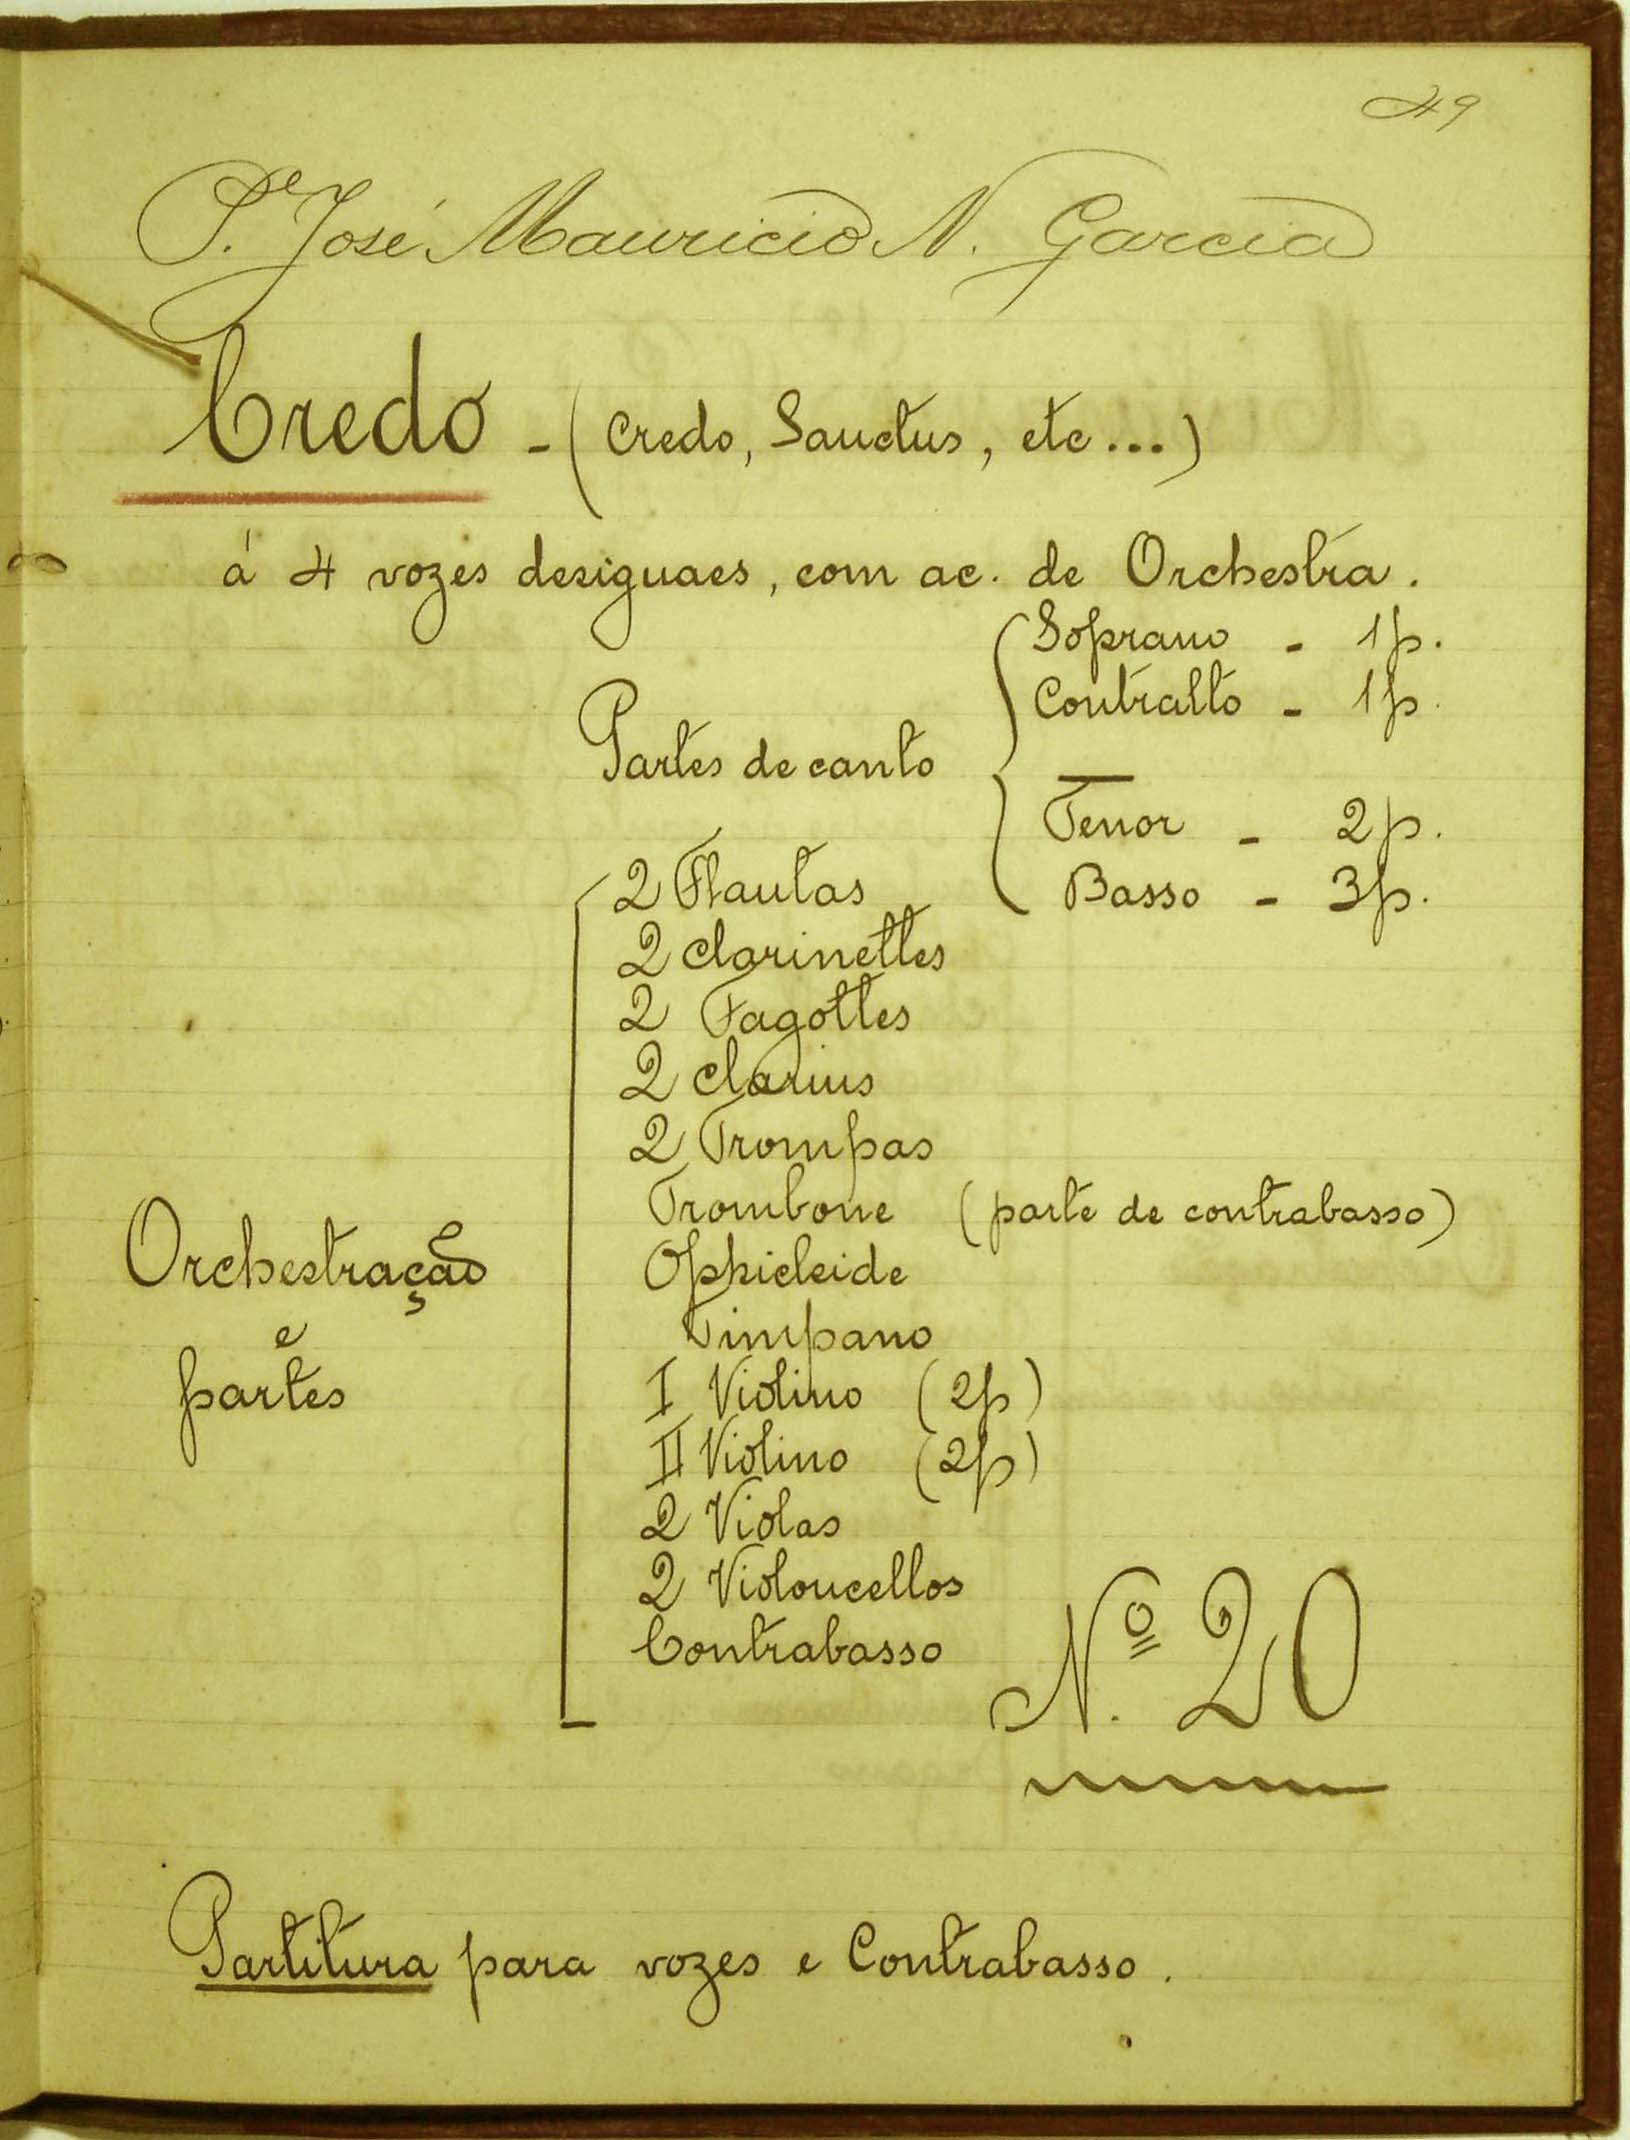 49
P.e José Mauricio N. Garcia
Credo - (Credo, Sanctus, etc...)
á 4 vozes desiguaes, com ac. de Orchestra.
Partes de canto
Soprano - 1p.
Contralto - 1p.
Tenor - 2p.
Basso - 3p.
Orchestração
e
partes
2 Flautas
2 Clarinettes
2 Fagottes
2 Clarins
2 Trompas
Trombone (parte de contrabasso)
Ophicleide
Timpano
I Violino (2p)
II Violino (2p)
2 Violas
2 Violoncellos
Contrabasso
Nº. 20
Partitura para vozes e Contrabasso.